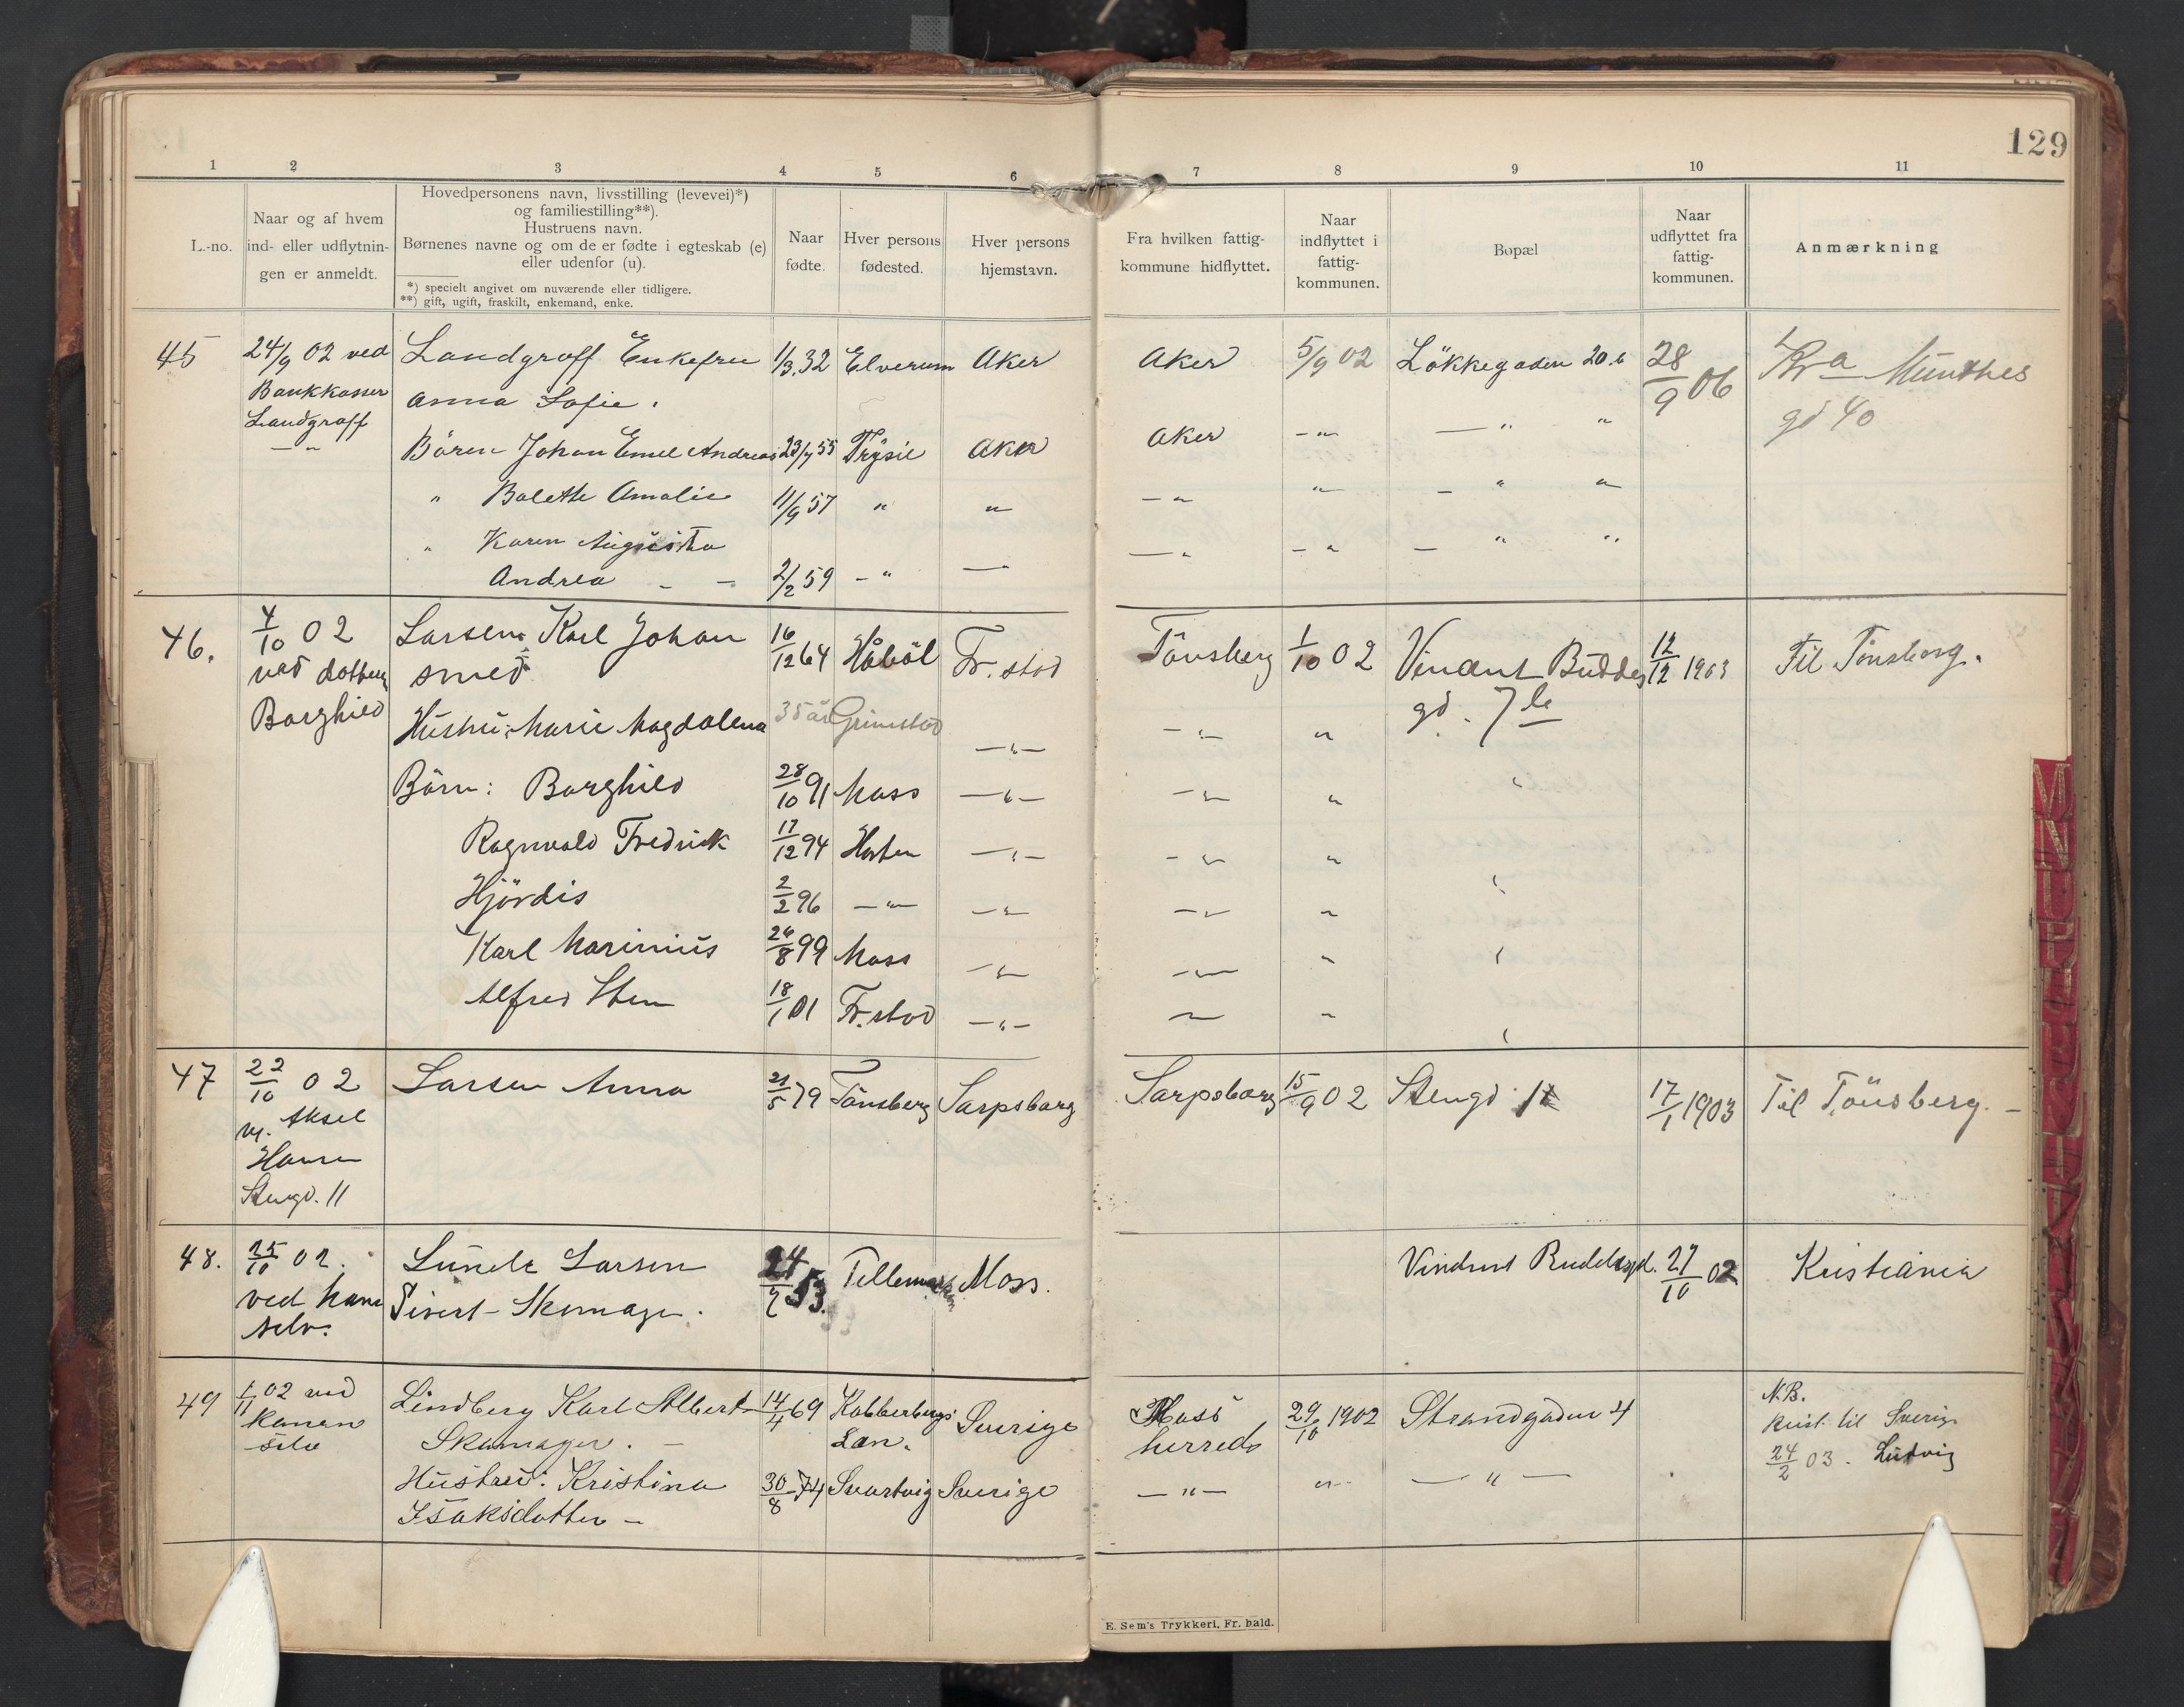 129
1 2 3 4 5 6 7 8 9 10 11
L.-no.
Naar og af hvem
ind- eller udflytnin-
gen er anmeldt.
Hovedpersonens navn, livsstilling (levevei)*)
og familiestilling**).
Hustruens navn.
Børnenes navne og om de er fødte i egteskab (e)
eller udenfor (u).
*) specielt angivet om nuværende eller tidligere.
**) gift, ugift, fraskilt, enkemand, enke.
Naar
fødte.
Hver persons
fødested.
Hver persons
hjemstavn.
Fra hvilken fattig-
kommune hidflyttet.
Naar
indflyttet i
fattig-
kommunen.
Bopæl
Naar
udflyttet fra
fattig-
kommunen.
Anmærkning
45 24/9 02 ved Landgraff Enkefru 1/3.32 Elverum Aker Aker 5/9 02 Lökkegaden 20.b 28/9 06 Kra Munthes
Bankkasser Anna Sofie. gd 40
Landgraff
— " Bören Johan Emil Andreas 23/7 55 Trysil Aker Aker - " — " "
" Bolette Amalie 11/9 57 " " - " " - " "
" Karen Augusta — " - " - " "
Andrea - - 2/2 59 - " — "
46. 4/10 02 Larsen Karl Johan 16/12 64 Håböl Fr. stad Tönsberg 1/10 02 Vincent Buddes 12/12 1903 Til Tönsberg.
ved datteren smed gd. 7 b
Borghild Hustru: Marie Magdalena 35 år Grimstad — " — - " - "
Börn: Borghild 28/10 91 Moss — " — - " - " "
Ragnvald Fredrik 17/12 94 Horten — " — - " - "
Hjördis 2/2 96 — " — — " — - " - " "
Karl Marinius 24/8 99 Moss — " — — " — " "
Alfred Sten 18/1 01 Fr. stad — " — " " "
47 22/10 02 Larsen Anna 21/5 79 Tönsberg Sarpsborg Sarpsborg 15/9 02 Stengd 11 17/1 1903 Til Tönsberg. -
v. Aksel
Hansen
Stengd. 11
48. 25/10 02. Lunde Larsen 24/2 53. Tellemarken Moss. Vindent Buddesgd. 27/10 02 Kristiania
ved ham Sivert - Skomager.
selv.
49 1/11 02 ved Lindberg Karl Albert 14/4 69 Kobberbergs Sverige Moss 29/10 1902 Strandgaden 4 N.B.
Skomager. - Län. herred reist til Sverige
selv 24/2 03. Ludvig
Hustru: Kristina 30/8 74 Svartvig Sverige — " — " — " —
Isaksdatter -
E. Sem's Trykkeri, Fr. hald.